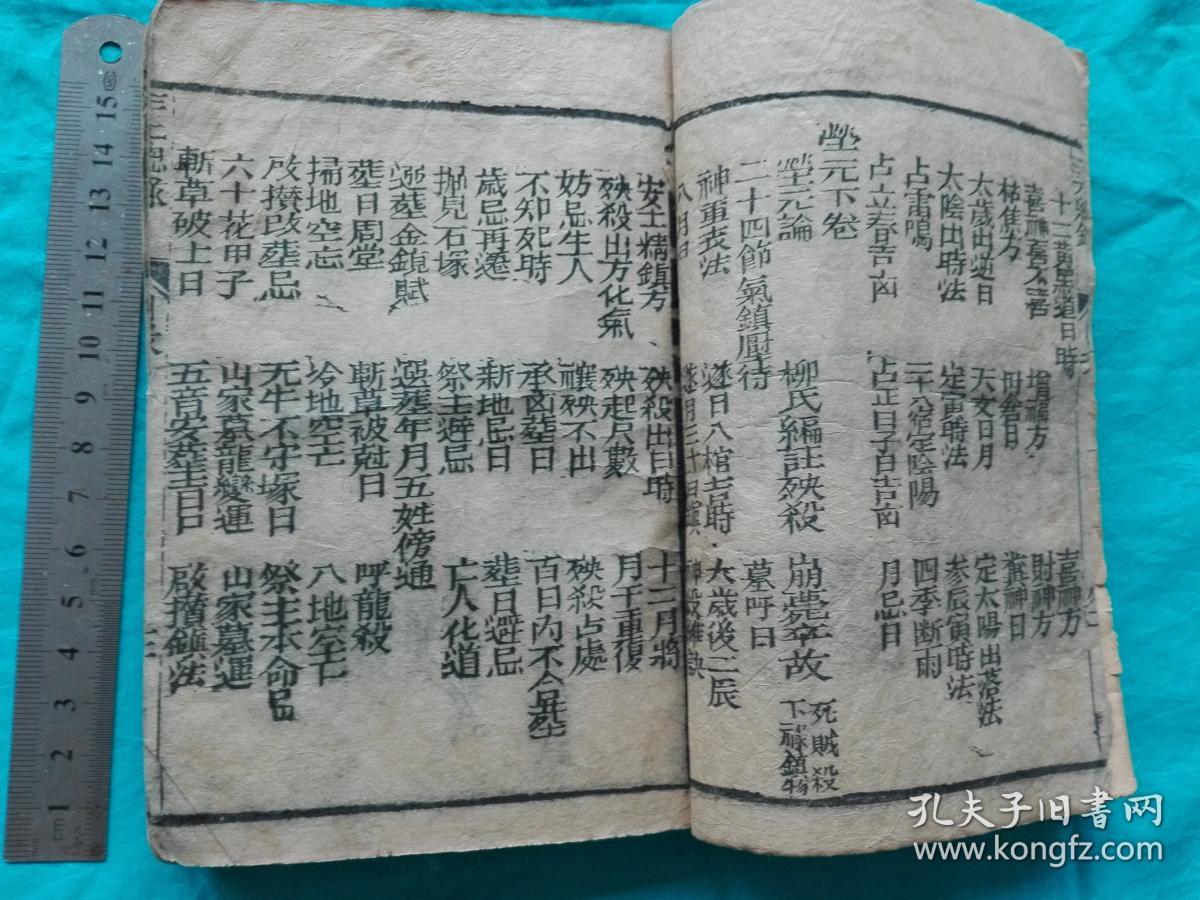 十二黃黑道日時
喜神方
喜神舊不吉
增福方
財神方
枯焦方
冀神日
太歲出遊日
天文日月
定太陽出落法
太陰出時法
定寅時法
参辰寅時法
占雷鳴
二十八宿定陰陽
四季断雨
占立春吉凶
占正月子日吉凶
月忌日
塋元下卷
塋元論
柳氏編註殃殺
崩薨卒故
死贼殺
下祿鎮物
二十四節氣鎮壓待
墓呼日
神重表法
逐日入棺吉時
大歲後二辰
八月日
安土精鎮方
殃殺出日時
十二月將
殃殺出方化氣
殃起尺數
月子重復
妨忌生人
禳殃不出
殃殺占處
不知死時
承凶塟日
百日内不合塟
歲忌再遷
新地忌日
塟日避忌
掘見石塚
祭主避忌
亡人化道
遷塟金鏡賦
遷塟年月五姓傍通
塟日周堂
斬草破尅日
呼龍殺
掃地空忘
冷地空亡
八地空亡
啟攢改塟忌
无牛不守塚日
祭主本命忌
六十花甲子
山家墓龍變運
山家墓運
斬草破土日
五音安塟吉日
啟攢鎮法
孔夫子旧書网
www.kongfz.com